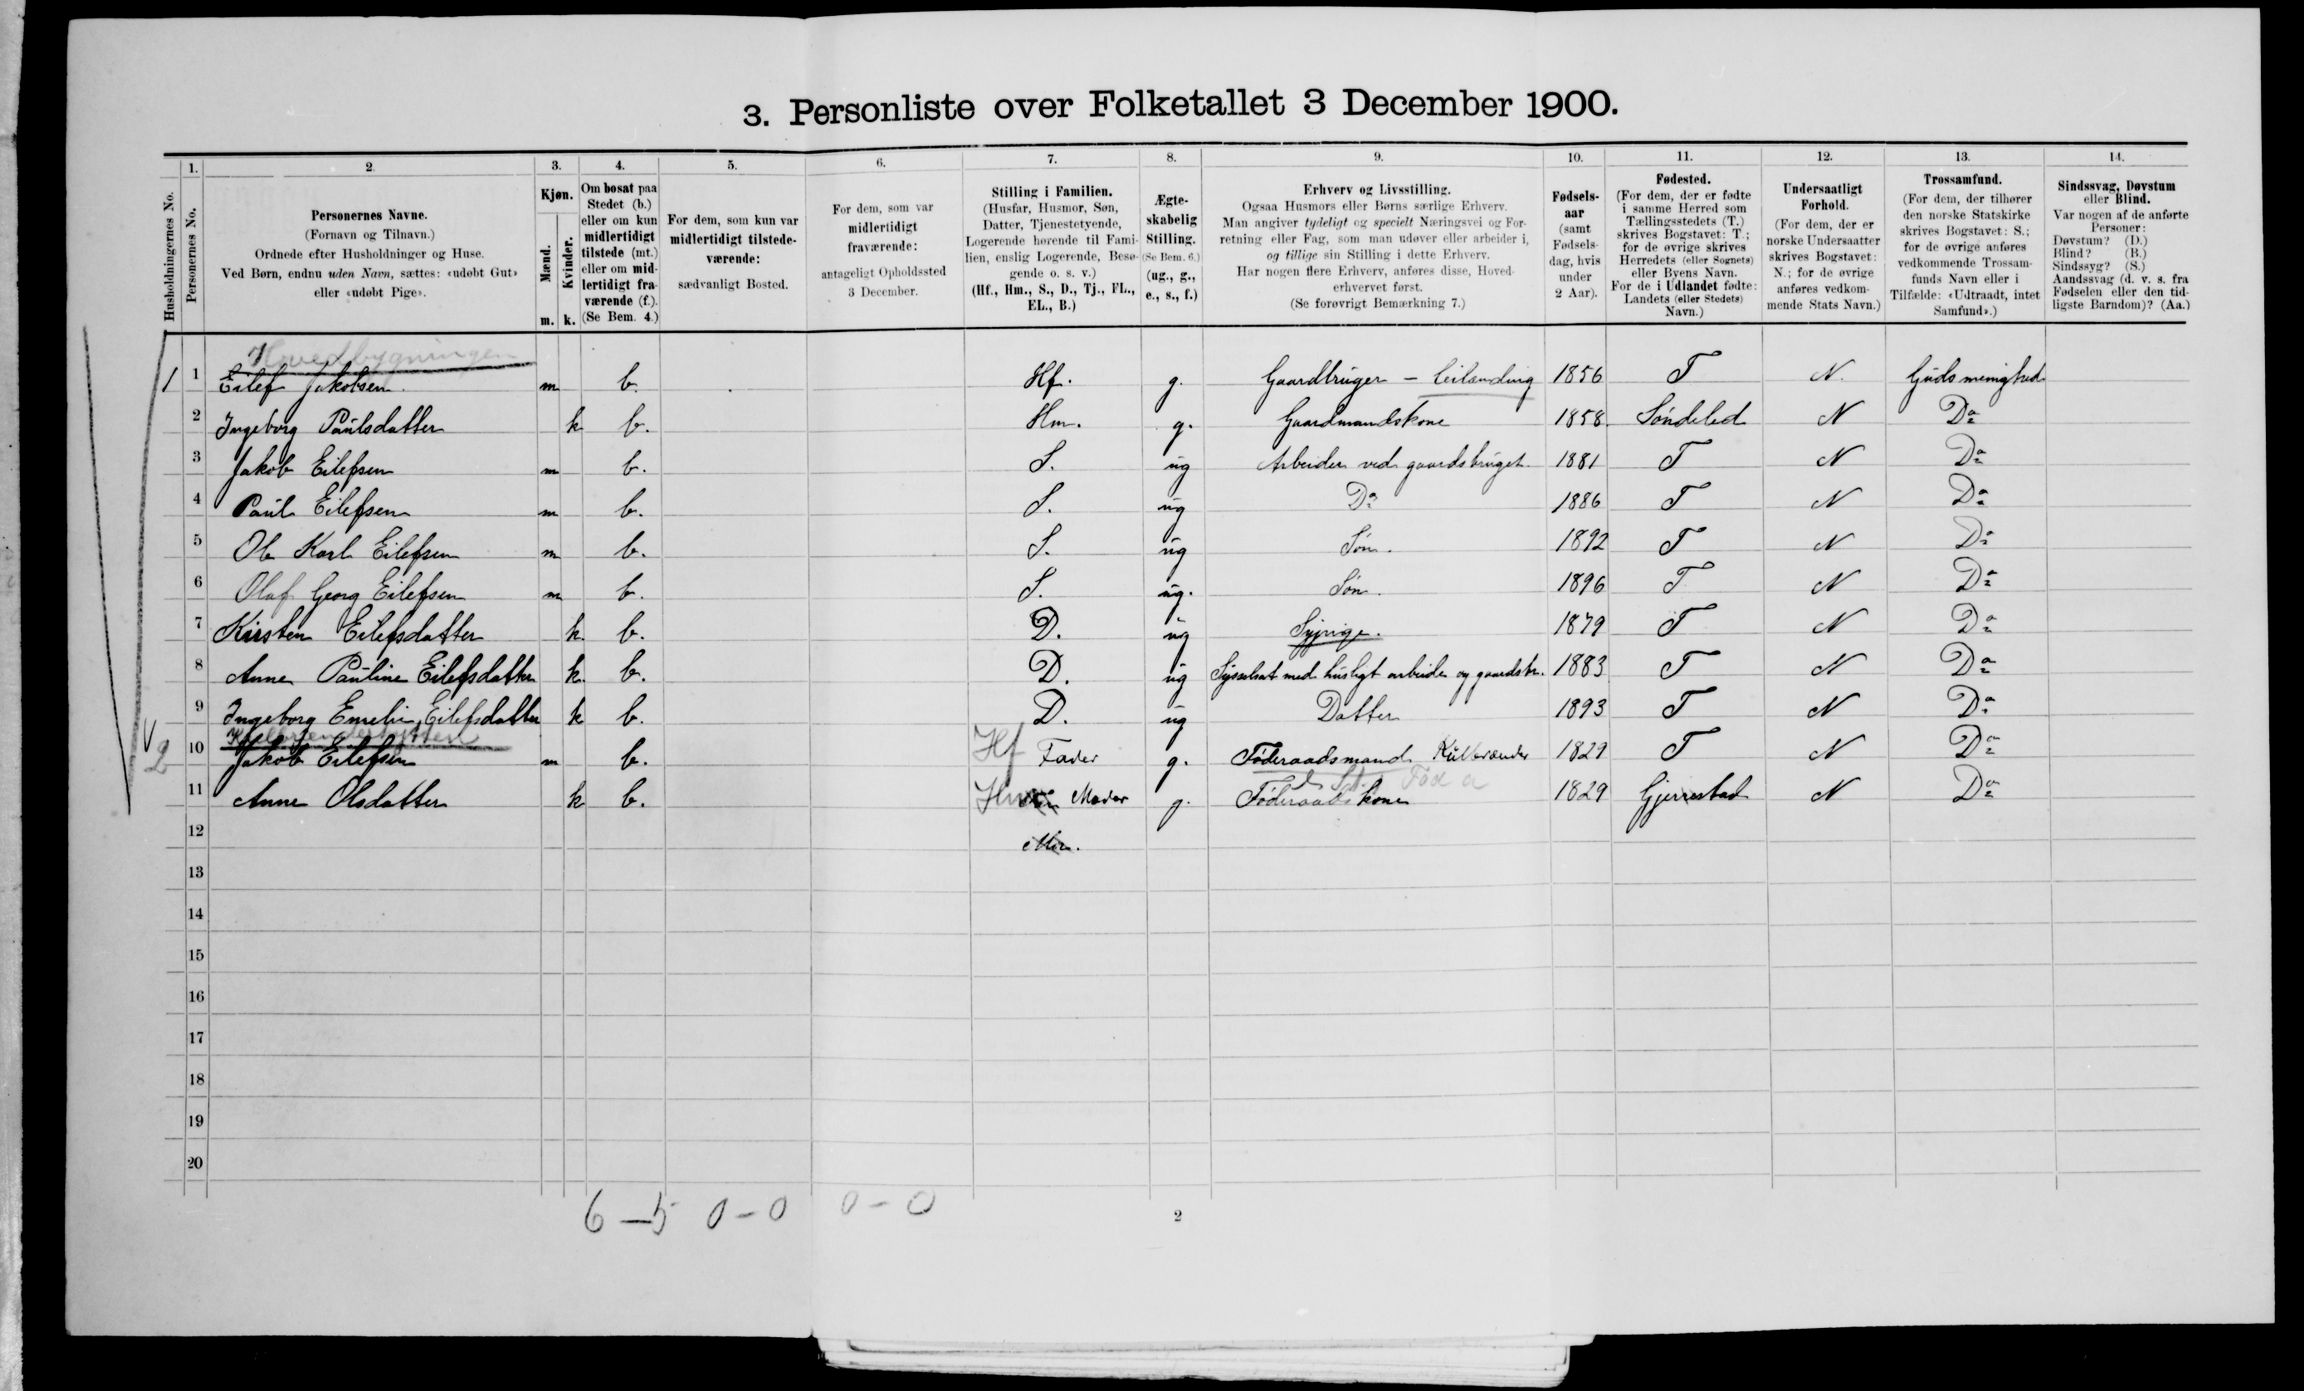 3. Personliste over Folketallet 3 December 1900.
Husholdningernes No.
1.
Personernes No.
2.
Personernes Navne.
(Fornavn og Tilnavn.)
Ordnede efter Husholdninger og Huse.
Ved Børn, endnu uden Navn, sættes: «udøbt Gut»
eller «udøbt Pige».
3.
Kjøn.
Mænd.
Kvinder.
m. k.
4.
Om bosat paa
Stedet (b.)
eller om kun
midlertidigt
tilstede (mt.)
eller om mid-
lertidigt fra-
værende (f.).
(Se Bem. 4.)
5.
For dem, som kun var
midlertidigt tilstede-
værende:
sædvanligt Bosted.
6.
For dem, som var
midlertidigt
fraværende:
antageligt Opholdssted
3 December.
7.
Stilling i Familien.
(Husfar, Husmor, Søn,
Datter, Tjenestetyende,
Logerende hørende til Fami-
lien, enslig Logerende, Besø-
gende o. s. v.)
(Hf., Hm., S., D., Tj., FL.,
EL., B.)
8.
Ægte-
skabelig
Stilling.
(Se Bem. 6.)
(ug., g.,
e., s., f.)
9.
Erhverv og Livsstilling.
Ogsaa Husmors eller Børns særlige Erhverv.
Man angiver tydeligt og specielt Næringsvei og For-
retning eller Fag, som man udøver eller arbeider i,
og tillige sin Stilling i dette Erhverv.
Har nogen flere Erhverv, anføres disse, Hoved-
erhvervet først.
(Se forøvrigt Bemærkning 7.)
10.
Fødsels-
aar
(samt
Fødsels-
dag, hvis
under
2 Aar).
11.
Fødested.
(For dem, der er fødte
i samme Herred som
Tællingsstedets (T.)
skrives Bogstavet: T.;
for de øvrige skrives
Herredets (eller Sognets)
eller Byens Navn.
For de i Udlandet fødte:
Landets (eller Stedets)
Navn.)
12.
Undersaatligt
Forhold.
(For dem, der er
norske Undersaatter
skrives Bogstavet:
N.; for de øvrige
anføres vedkom-
mende Stats Navn.)
13.
Trossamfund.
(For dem, der tilhører
den norske Statskirke
skrives Bogstavet: S.;
for de øvrige anføres
vedkommende Trossam-
funds Navn eller i
Tilfælde: «Udtraadt, intet
Samfund».)
14.
Sindssvag, Døvstum
eller Blind.
Var nogen af de anførte
Personer:
Døvstum? (D.)
Blind? (B.)
Sindssyg? (S.)
Aandssvag (d. v. s. fra
Fødselen eller den tid-
ligste Barndom)? (Aa.)
Hovedbygningen
1 1 Eilef Jakobsen m b. Hf. g. Gaardbruger – leilending 1856 T N. Guds menighed
2 Ingeborg Paulsdatter k b. Hm. g. Gaardmandskone 1858 Søndeled N Do
3 Jakob Eilefsen m b. S. ug Arbeider ved gaardsbruget 1881 T N Do
4 Paul Eilefsen m b. S. ug Do 1886 T N Do
5 Ole Karl Eilefsen m b. S. ug Søn. 1892 T N Do
6 Olaf Georg Eilefsen m b. S. ug. Søn. 1896 T N Do
7 Kirsten Eilefsdatter k b. D. ug Sypige. 1879 T N Do
8 Anne Pauline Eilefsdatter k. b. D. ug Sysselsat med husligt arbeide og gaardsbr. 1883 T N Do
9 Ingeborg Emelie Eilefsdatter k b. D. ug Datter 1893 T N Do
2 10 Jakob Eilefsen m b. Hf Fader g. Føderaadsmand 1829 T N Do
11 Anne Olsdatter k b. Hm Moder g. Føderaadskone 1829 Gjerrestad N Do
12
13
14
15
16
17
18
19
20
6 – 5 0 – 0 0 – 0
2